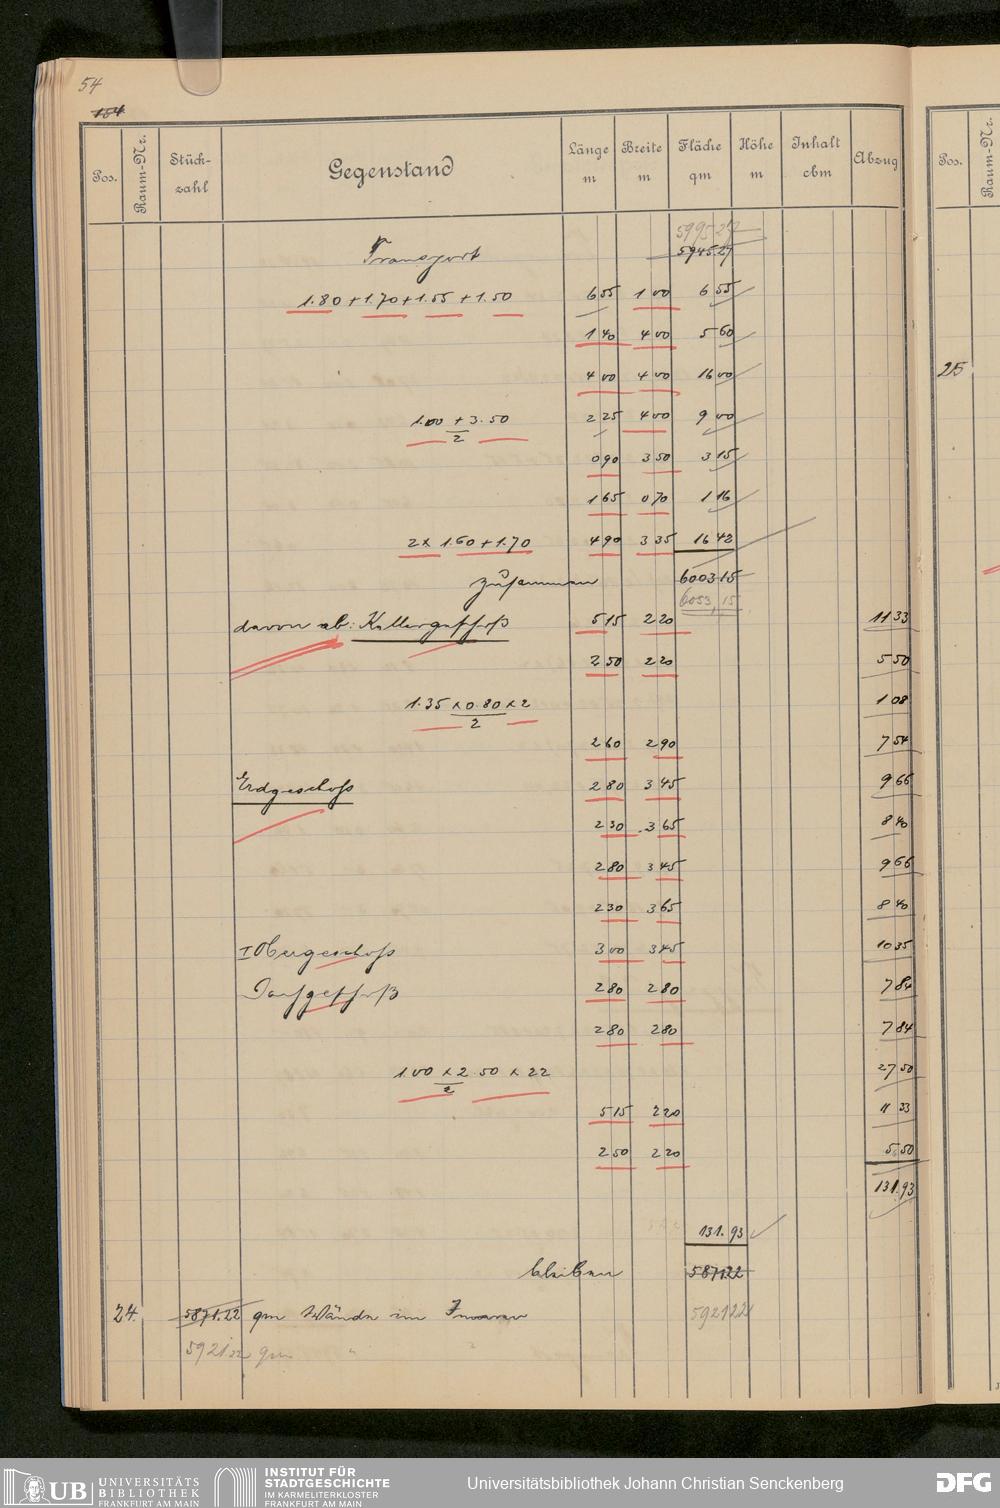 54
154
Pos. Raum-Nr. Stück-zahl Gegenstand Länge m Breite m Fläche qm Höhe m Inhalt cbm Abzug Pos. Raum-Nr.
5995 27
Transport 5945.27
1.80 + 1.70 + 1.55 + 1.50 6 55 1 00 6 55
1 40 4 00 5 60
4 00 4 00 16 00
25
1.00 + 3.50 / 2 2 25 4 00 9 00
0 90 3 50 3 15
1 65 0 70 1 16
2 x 1.60 + 1.70 4 90 3 35 16 42
zusammen 6003 15
6053,15
davon ab: Kellergeschoß 5 15 2 20 11 33
2 50 2 20 5 50
1.35 x 0.80 x 2 / 2 1 08
2 60 2 90 7 54
Erdgeschoss 2 80 3 45 9 66
2 30 3 65 8 40
2 80 3 45 9 66
2 30 3 65 8 40
I Obergeschoss 3 00 3 45 10 35
Dachgeschoß 2 80 2 80 7 84
2 80 2 80 7 84
1.00 x 2.50 x 22 / 2 27 50
5 15 2 20 11 33
2 50 2 20 5 50
131.93
131.93
bleiben 5871.22
24. 5871.22 qm Wände im Inneren 5921 22
5921 22 qm " "
UB UNIVERSITÄTS BIBLIOTHEK FRANKFURT AM MAIN
INSTITUT FÜR STADTGESCHICHTE IM KARMELITERKLOSTER FRANKFURT AM MAIN
Universitätsbibliothek Johann Christian Senckenberg
DFG